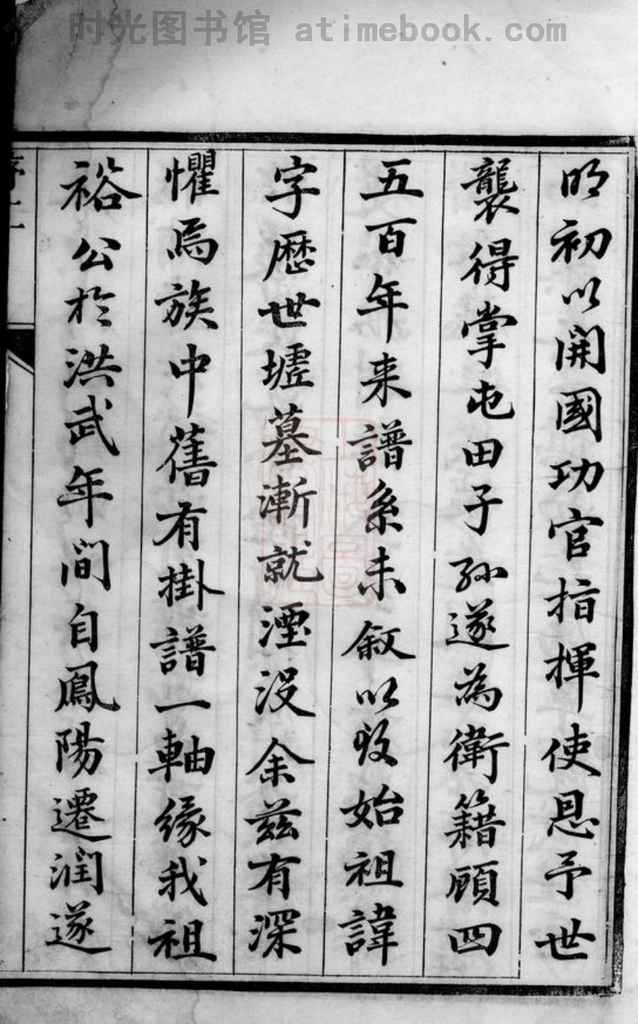 时光图书馆 atimebook.com
明初以開國功官指揮使恩予世
襲得掌屯田子孫遂為衛籍顧四
五百年来譜系未叙以致始祖諱
字歷世墟墓漸就湮没余兹有深
懼焉族中舊有掛譜一軸緣我祖
裕公於洪武年間自鳳陽遷潤遂